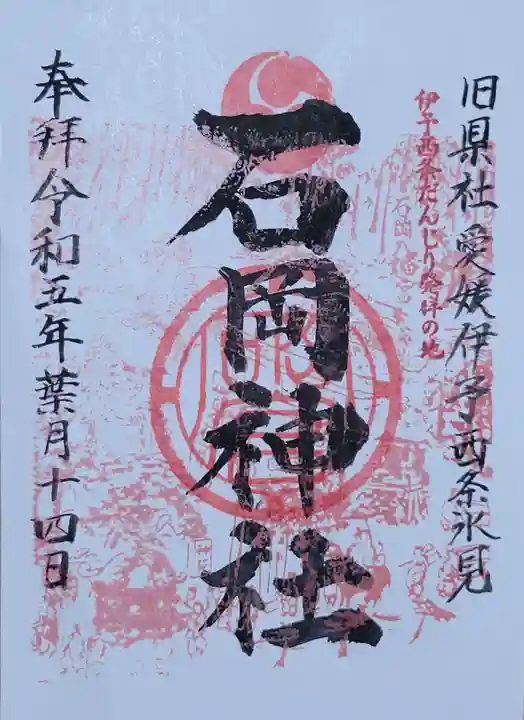 旧県社 愛媛伊予西条氷見
伊予西条だんじり発祥の地
石岡八幡宮
石岡神社
奉拝 令和五年葉月十四日